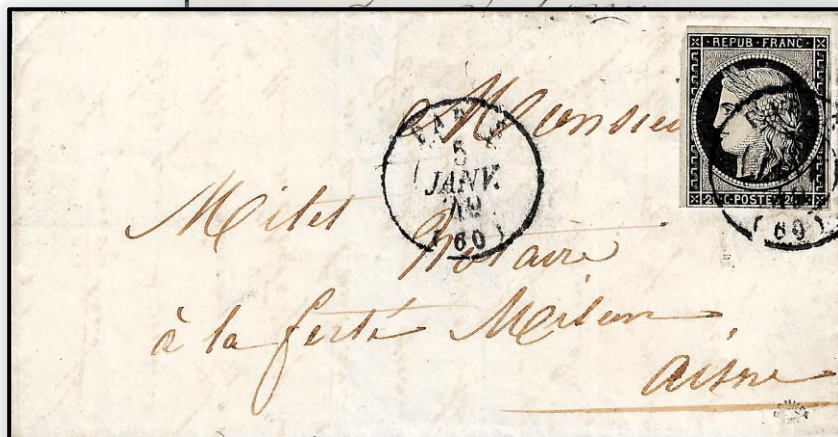 REPUB·FRANC·
20 C·POSTES·20 C
PARIS
5
JANV.
49
(60)
(60)
Monsieur
Milet
Notaire
à la ferté Milon
aisne